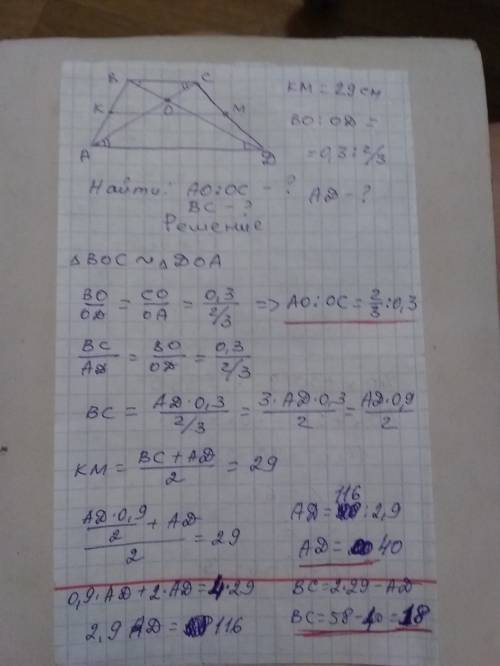 B C
K O M
A D
KM = 29 см
BO : OD =
= 0,3 : 2/3
Найти: AO : OC - ?
BC - ?
AD - ?
Решение
△BOC ~ △DOA
BO/OD = CO/OA = 0,3/(2/3) => AO : OC = 2/3 : 0,3
BC/AD = BO/OD = 0,3/(2/3)
BC = AD·0,3/(2/3) = 3·AD·0,3/2 = AD·0,9/2
KM = (BC + AD)/2 = 29
(AD·0,9/2 + AD)/2 = 29
0,9·AD + 2·AD = 4·29
2,9 AD = 116
AD = 116 : 2,9
AD = 40
BC = 2·29 - AD
BC = 58 - 40 = 18